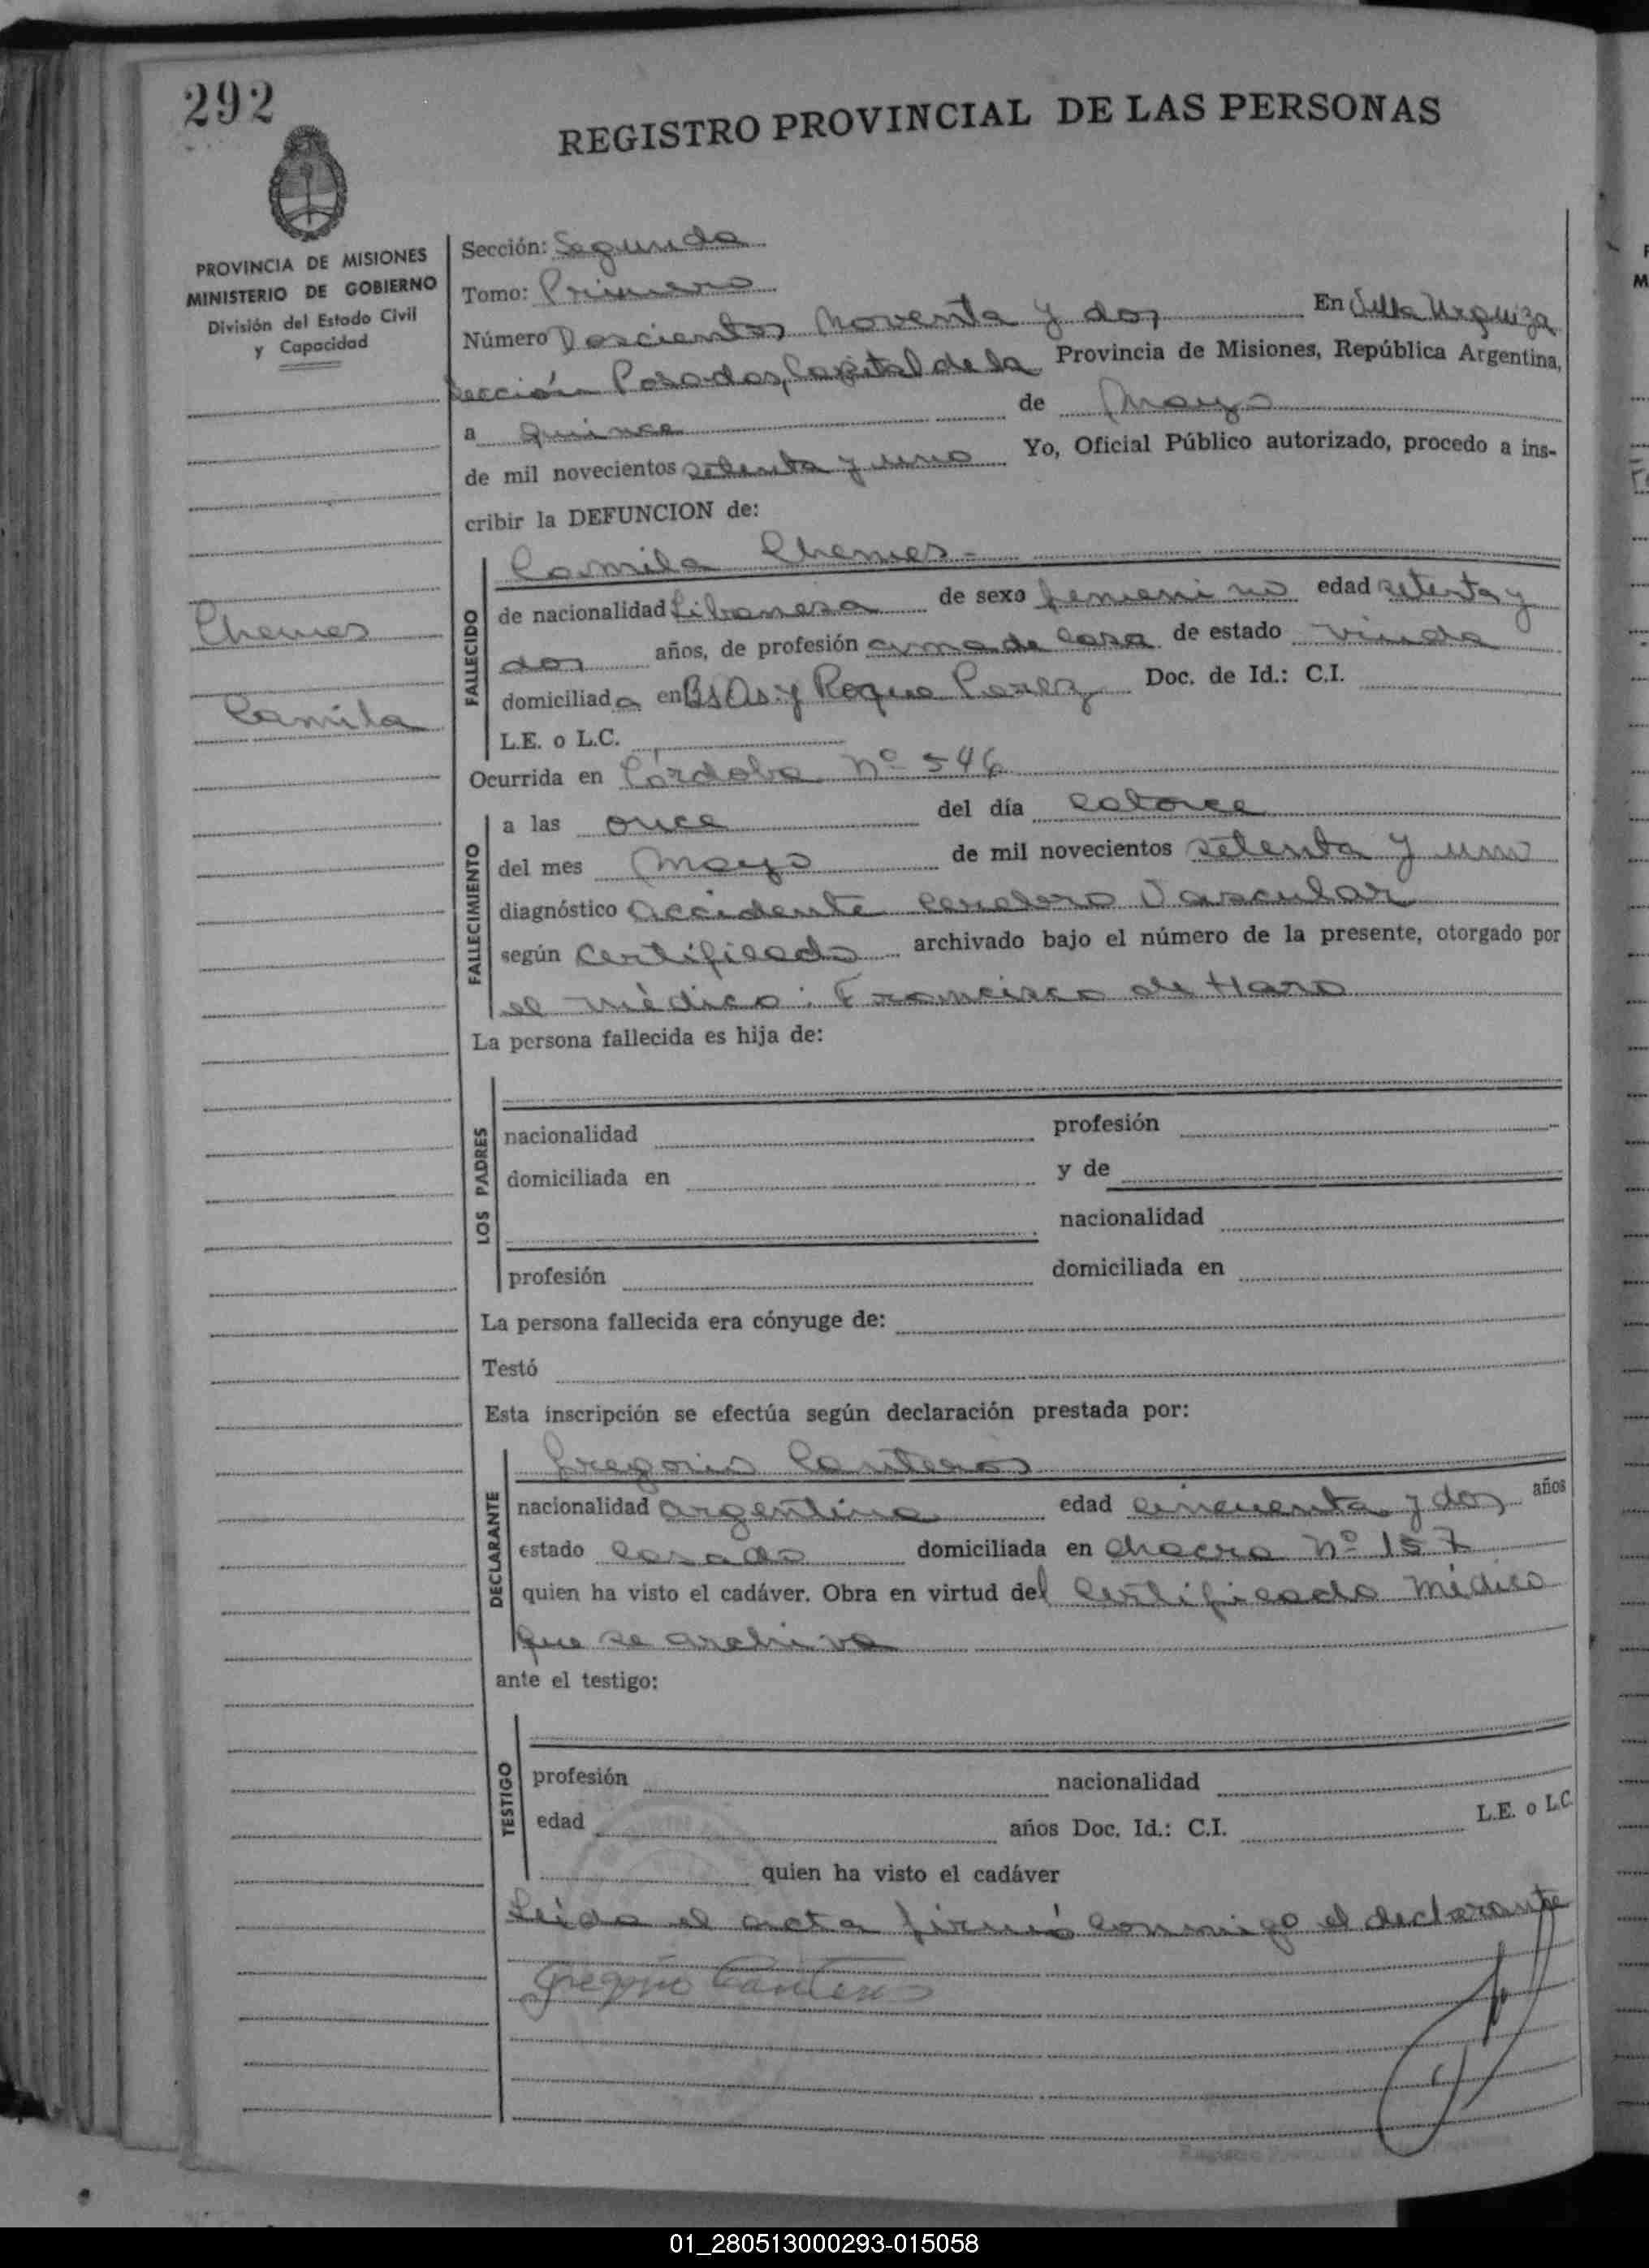 292
REGISTRO PROVINCIAL DE LAS PERSONAS
PROVINCIA DE MISIONES
MINISTERIO DE GOBIERNO
División del Estado Civil
y Capacidad
Chemes
Camila
Sección: Segunda
Tomo: Primero
Número Doscientos Noventa y dos En Villa Urquiza
Sección Posadas, Capital de la Provincia de Misiones, República Argentina,
a quince de Mayo
de mil novecientos setenta y uno Yo, Oficial Público autorizado, procedo a ins-
cribir la DEFUNCION de:
FALLECIDO
Camila Chemes -
de nacionalidad Libanesa de sexo femenino edad setenta y
dos años, de profesión ama de casa de estado viuda
domiciliada en Bs As. y Roque Perez Doc. de Id.: C.I.
L.E. o L.C.
Ocurrida en Córdoba Nº 546
FALLECIMIENTO
a las once del día catorce
del mes Mayo de mil novecientos setenta y uno
diagnóstico Accidente Cerebro Vascular
según certificado archivado bajo el número de la presente, otorgado por
el médico: Francisco de Haro
La persona fallecida es hija de:
LOS PADRES
nacionalidad profesión
domiciliada en y de
nacionalidad
profesión domiciliada en
La persona fallecida era cónyuge de:
Testó
Esta inscripción se efectúa según declaración prestada por:
DECLARANTE
Gregorio Canteros
nacionalidad argentina edad cincuenta y dos años
estado casado domiciliada en chacra Nº 157
quien ha visto el cadáver. Obra en virtud del Certificado médico
que se archiva
ante el testigo:
TESTIGO
profesión nacionalidad
edad años Doc. Id.: C.I. L.E. o L.C.
quien ha visto el cadáver
Leída el acta firmó conmigo el declarante
Gregorio Canteros
01_280513000293-015058